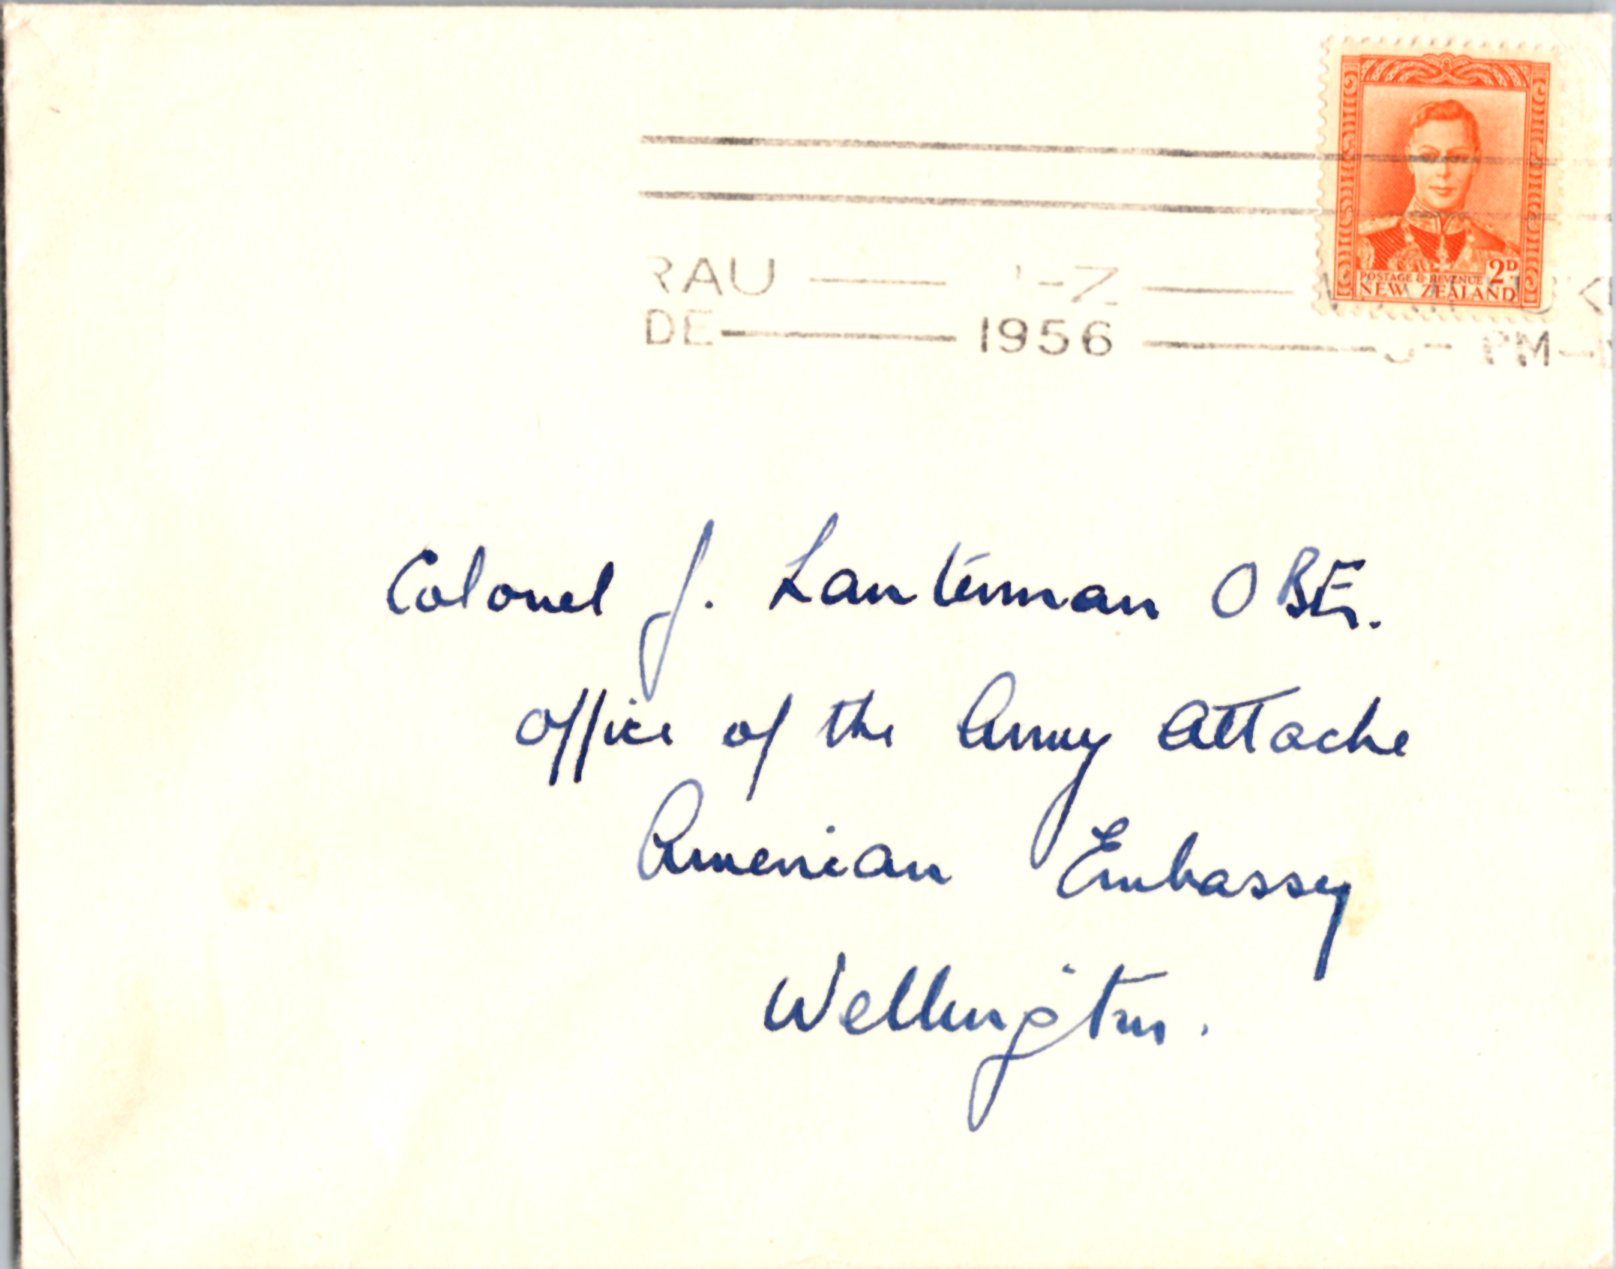 POSTAGE & REVENUE 2D
NEW ZEALAND
RAU
DE 1956 PM
Colonel J. Lanterman OBE.
Office of the Army Attache
American Embassy
Wellington.